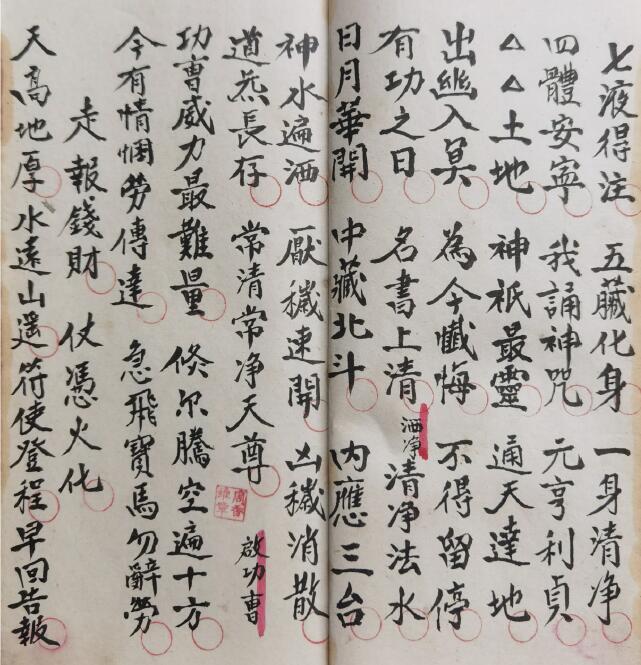 七液得注 五臟化身 一身清净
四體安寧 我誦神咒 元亨利貞
△△土地 神祇最靈 通天達地
出幽入冥 為今懺悔 不得留停
有功之日 名書上清 洒净 清净法水
日月華開 中藏北斗 内應三台
神水遍洒 厭穢速開 凶穢消散
道炁長存 常清常净天尊 啟功曹
功曹威力最難量 倏尔騰空遍十方
今有情悃劳傳達 急飛寶馬勿辭勞
走報錢財 仗憑火化
天高地厚水遠山遥符使登程早回告報